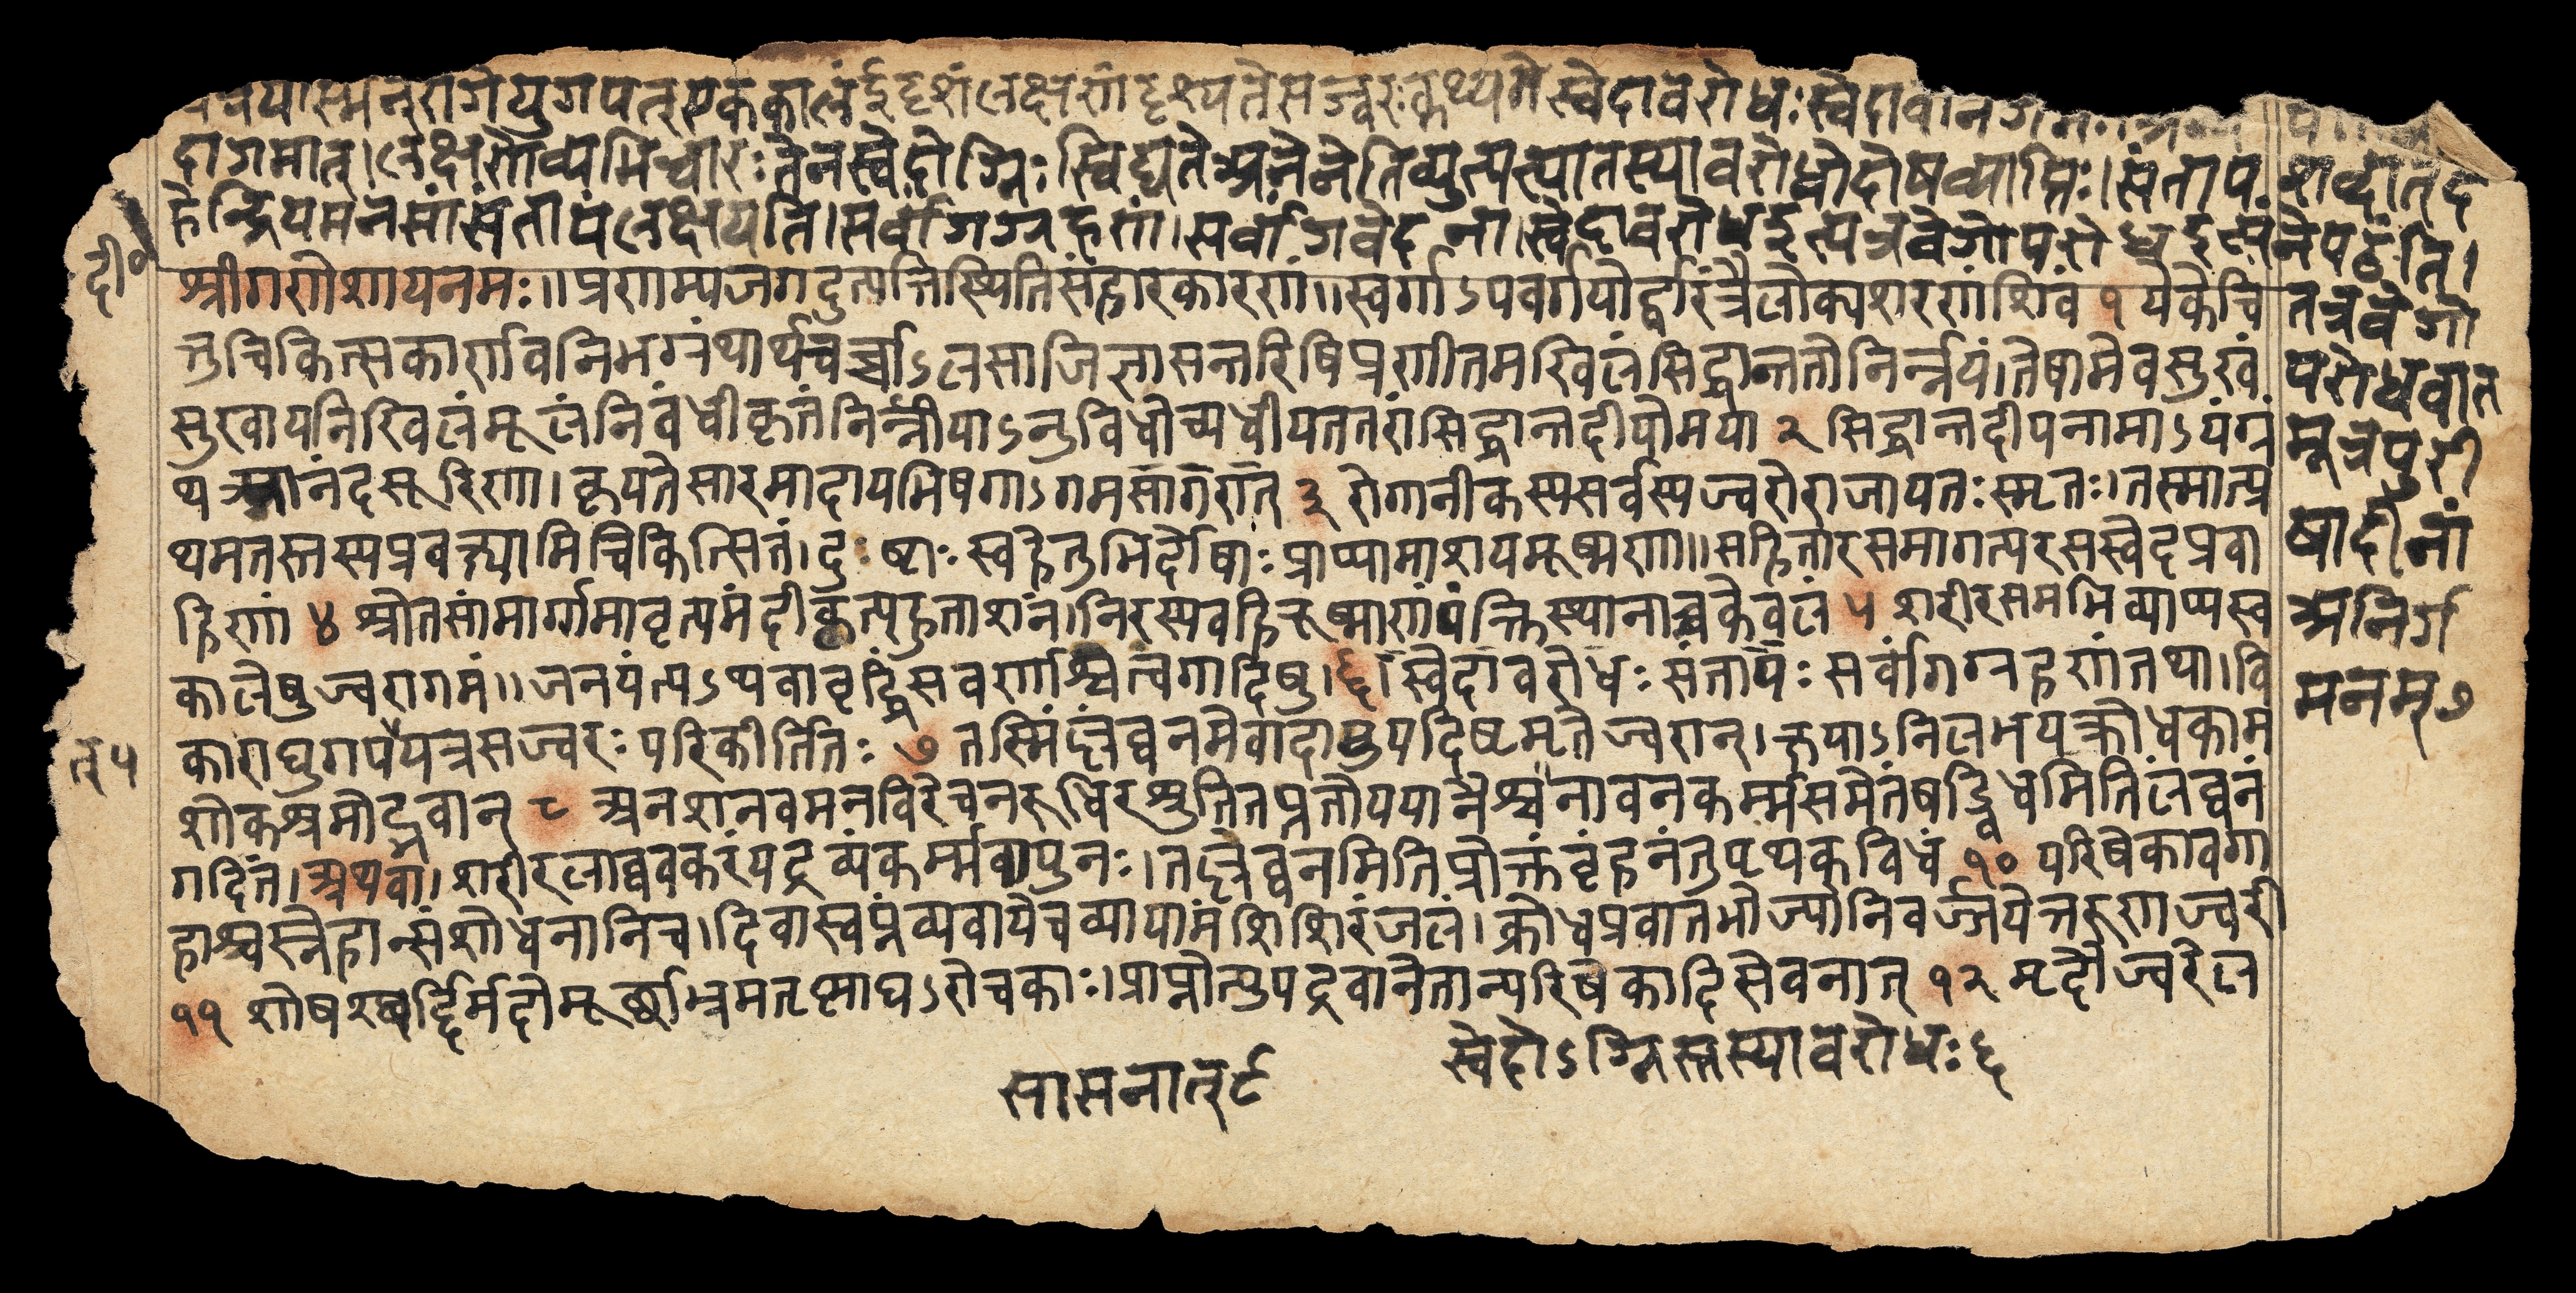 यास्मन्रोगेयुगपत्एककालंईदृशंलक्षणंदृश्यतेसज्वरःकथ्यते स्वेदावरोधःस्वेदावानगम
दागमात्।लक्षणोव्यभिचारःतेनस्वेदोग्निःस्विद्यतेअनेनेतिव्युत्पत्यातस्यावरोधोदोषव्याप्तिः।संताप शब्दात्दे
हेन्द्रियमनसांसंतापंलक्षयति।सर्वांगग्रहणं।सर्वांगवेदना।स्वेदावरोधइत्यत्रवेगोपरोधइत्यनेपठंति।
दी०
श्रीगणेशायनमः॥प्रणम्यजगदुत्पत्तिस्थितिसंहारकारणं॥स्वर्गाऽपवर्गयोर्द्वारंत्रैलोक्यशरणंशिवं १ येकेचि
त्तुचिकित्सकार्णवनिभग्रंथार्थचर्चाऽलसाजिज्ञासन्तरिषिप्रणीतमखिलंसिद्धान्ततोनिर्न्नयं।तेषामेवसुखं
सुखायनिखिलंमूलंनिबंधीकृतंनिर्न्नीयाऽनुविधोच्यधीयततरांसिद्धान्तदीपोमया २ सिद्धान्तदीपनामाऽयंग्रं
थ आनंदसूरिणा।कृयतेसारमादायभिषगाऽगमसागरात् ३ रोगानीकस्यसर्वस्यज्वरोराजायतःस्मृतः।तस्मात्प्र
थमतस्तस्यप्रवक्ष्यामिचिकित्सितं।दुः ष्टाःस्वहेतुभिर्दोषाःप्राप्यामाशयमूष्मणा॥सहितारसमागत्यरसस्वेदप्रवा
हिणां ४ श्रोतसांमार्गमावृत्यमंदीकृत्यहुताशनं।निरस्यवहिरूष्माणंपंक्तिस्थानाच्चकेवलं ५ शरीरसमभिव्याप्यस्व
कालेषुज्वरागमं॥जनयंत्यऽथवावृद्धिंसवर्णश्चत्वगादिषु।६।स्वेदावरोधःसंतापःसर्वांगग्रहणंतथा।वि
कारायुगपद्यत्रसज्वरःपरिकीर्तितः ७ तस्मिंल्लंघनमेवादावुपदिष्टमृतेज्वरान्।क्षयाऽनिलभयक्रोधकाम
त् ५
शोकश्रमोद्भवान् ८ अनशनवमनविरेचनरूधिरश्रुतितप्ततोयपानैश्चनावनकर्म्मसमेतंषड्विधमितिलंघनं
गदितं।अथवा।शरीरलाघवकरंयद्रव्यंकर्म्मवापुनः।तल्लंघनमितिप्रोक्तंवृंहनंतुपृथक्विधं १० परिषेकावगा
हाश्चस्नेहान्संशोधनानिच।दिवास्वप्नंव्यवायंचव्यायामंशिशिरंजलं।क्रोधप्रवातभोज्यानिवर्ज्जयेत्तरूणज्वरी
११ शोषश्छर्द्दिर्मदोमूर्छाभ्रमतृष्णाद्यऽरोचकाः।प्राप्नोत्युपद्रवानेतान्परिषेकादिसेवनात् १२ मृदौज्वरेल
तत्रवेगो
परोधवात
मूत्रपुरी
षादीनां
अनिर्ग
मनम् ७
स्वेदोऽग्निस्तस्यावरोधः ६
सासनात् ८